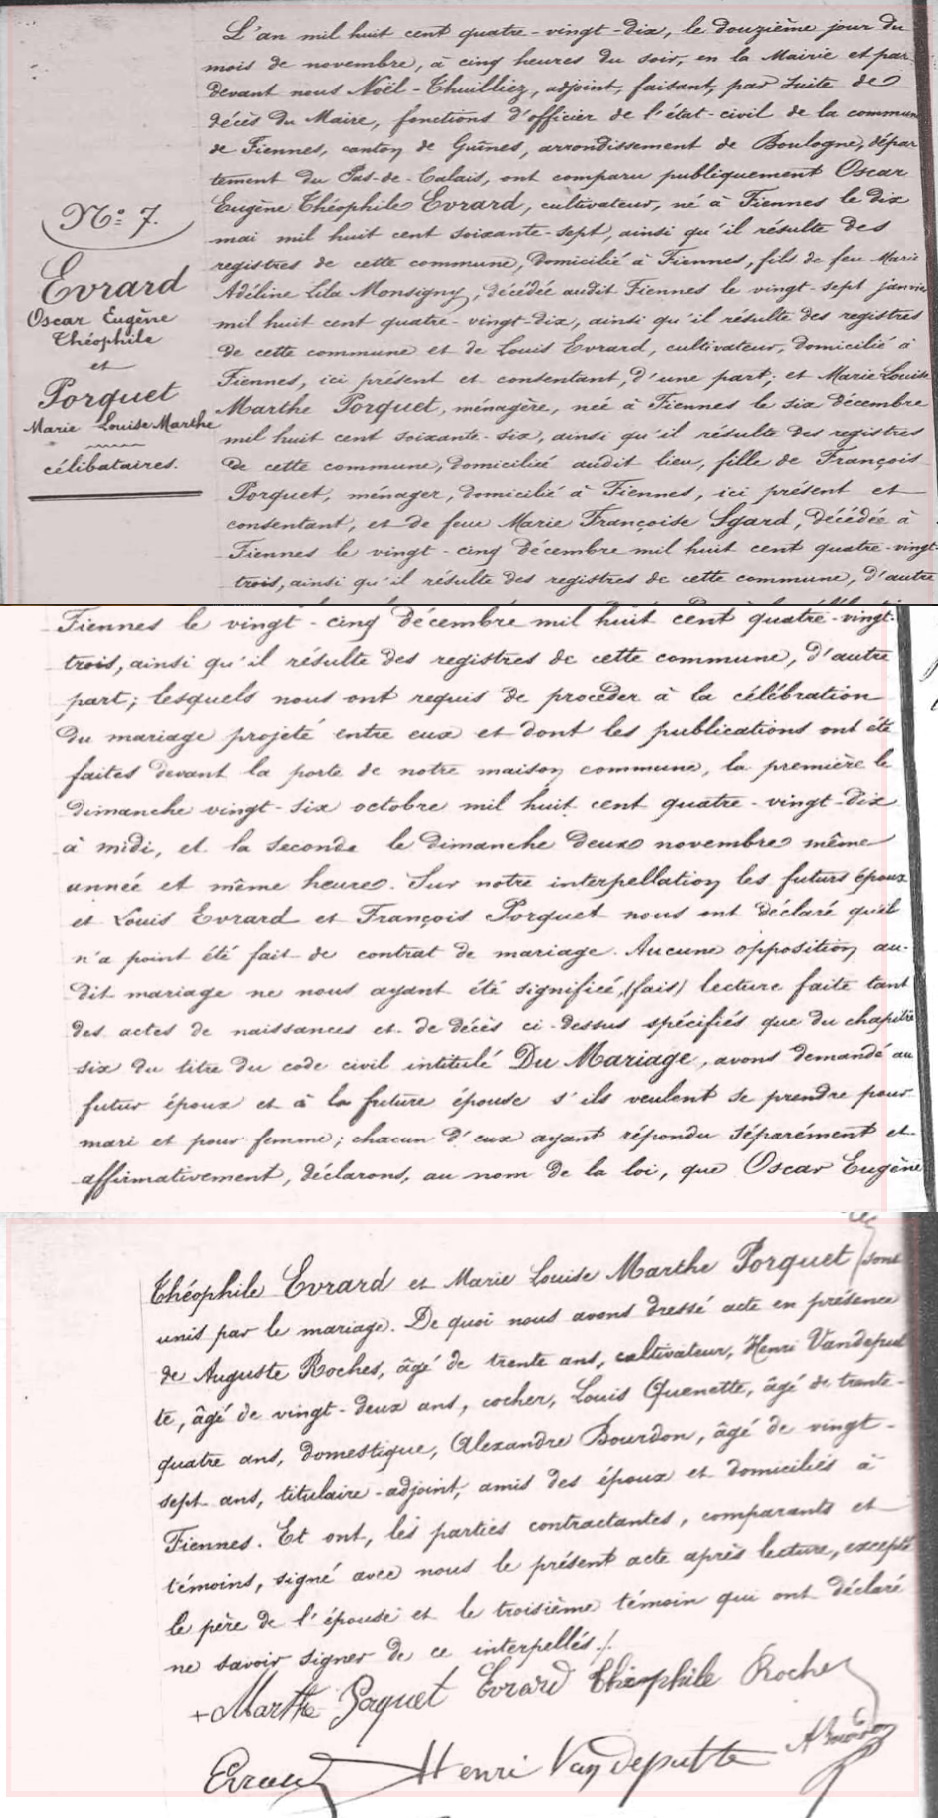 Nº 7.
Evrard
Oscar Eugène
Théophile
et
Porquet
Marie Louise Marthe
célibataires.
L'an mil huit cent quatre-vingt-dix, le douzième jour du
mois de novembre, à cinq heures du soir, en la Mairie et par
devant nous Noël-Thuilliez, adjoint, faisant, par suite de
décès du Maire, fonctions d'officier de l'état-civil de la commune
de Fiennes, canton de Guînes, arrondissement de Boulogne, dépar
tement du Pas-de-Calais, ont comparu publiquement Oscar
Eugène Théophile Evrard, cultivateur, né à Fiennes le dix
mai mil huit cent soixante-sept, ainsi qu'il résulte des
registres de cette commune, domicilié à Fiennes, fils de feu Marie
Adéline Lila Monsigny, décédée audit Fiennes le vingt-sept janvier
mil huit cent quatre-vingt-dix, ainsi qu'il résulte des registres
de cette commune et de Louis Evrard, cultivateur, domicilié à
Fiennes, ici présent et consentant, d'une part; et Marie Louise
Marthe Porquet, ménagère, née à Fiennes le six décembre
mil huit cent soixante-six, ainsi qu'il résulte des registres
de cette commune, domiciliée audit lieu, fille de François
Porquet, ménager, domicilié à Fiennes, ici présent et
consentant, et de feue Marie Françoise Sgard, décédée à
Fiennes le vingt-cinq décembre mil huit cent quatre-vingt-
trois, ainsi qu'il résulte des registres de cette commune, d'autre
Fiennes le vingt-cinq décembre mil huit cent quatre-vingt-
trois, ainsi qu'il résulte des registres de cette commune, d'autre
part; lesquels nous ont requis de procéder à la célébration
du mariage projeté entre eux et dont les publications ont été
faites devant la porte de notre maison commune, la première le
dimanche vingt-six octobre mil huit cent quatre-vingt-dix
à midi, et la seconde le dimanche deux novembre même
année et même heure. Sur notre interpellation les futurs époux
et Louis Evrard et François Porquet nous ont déclaré qu'il
n'a point été fait de contrat de mariage. Aucune opposition au-
dit mariage ne nous ayant été signifiée, (fais) lecture faite tant
des actes de naissances et de décès ci-dessus spécifiés que du chapitre
six du titre du code civil intitulé Du Mariage, avons demandé au
futur époux et à la future épouse s'ils veulent se prendre pour
mari et pour femme; chacun d'eux ayant répondu séparément et
affirmativement, déclarons, au nom de la loi, que Oscar Eugène
Théophile Evrard et Marie Louise Marthe Porquet sont
unis par le mariage. De quoi nous avons dressé acte en présence
de Auguste Roches, âgé de trente ans, cultivateur, Henri Vandeput
te, âgé de vingt-deux ans, cocher, Louis Quenette, âgé de trente-
quatre ans, domestique, Alexandre Bourdon, âgé de vingt-
sept ans, titulaire-adjoint, amis des époux et domiciliés à
Fiennes. Et ont, les parties contractantes, comparants et
témoins, signé avec nous le présent acte après lecture, excepté
le père de l'épouse et le troisième témoin qui ont déclaré
ne savoir signer de ce interpellés./.
+Marthe Porquet Evrard Théophile Roches
Evrard Henri Vandeputte ABourdon